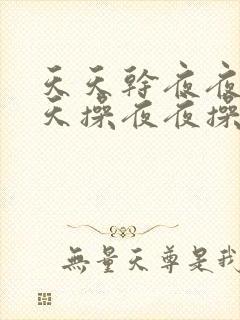 天天幹夜夜
天操夜夜操
無量天尊是我